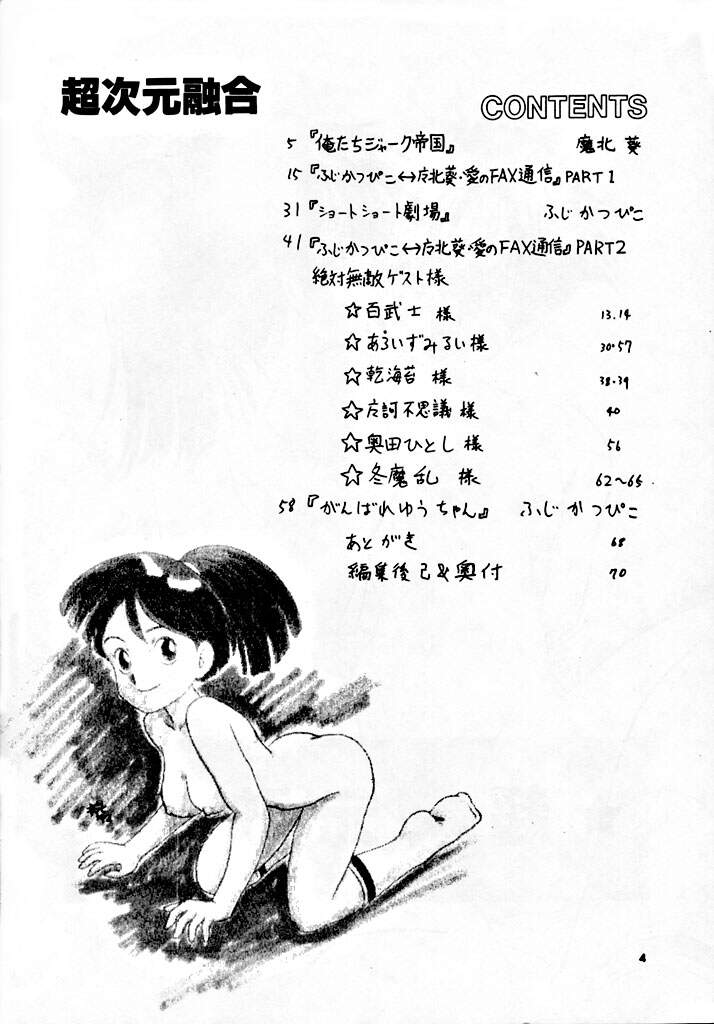 超次元融合
CONTENTS
5 『俺たちジャーク帝国』 魔北 葵
15 『ふじかつぴこ↔左北葵・愛のFAX通信』PART1
31 『ショートショート劇場』 ふじかつぴこ
41 『ふじかつぴこ↔左北葵・愛のFAX通信』PART2
絶対無敵ゲスト様
☆百武士 様 13.14
☆あらいずみるい様 30・57
☆乾海苔 様 38・39
☆摩訶不思議様 40
☆奥田ひとし様 56
☆冬魔乱 様 62〜65
58 『がんばれゆうちゃん』 ふじかつぴこ
あとがき 68
編集後己&奥付 70
4